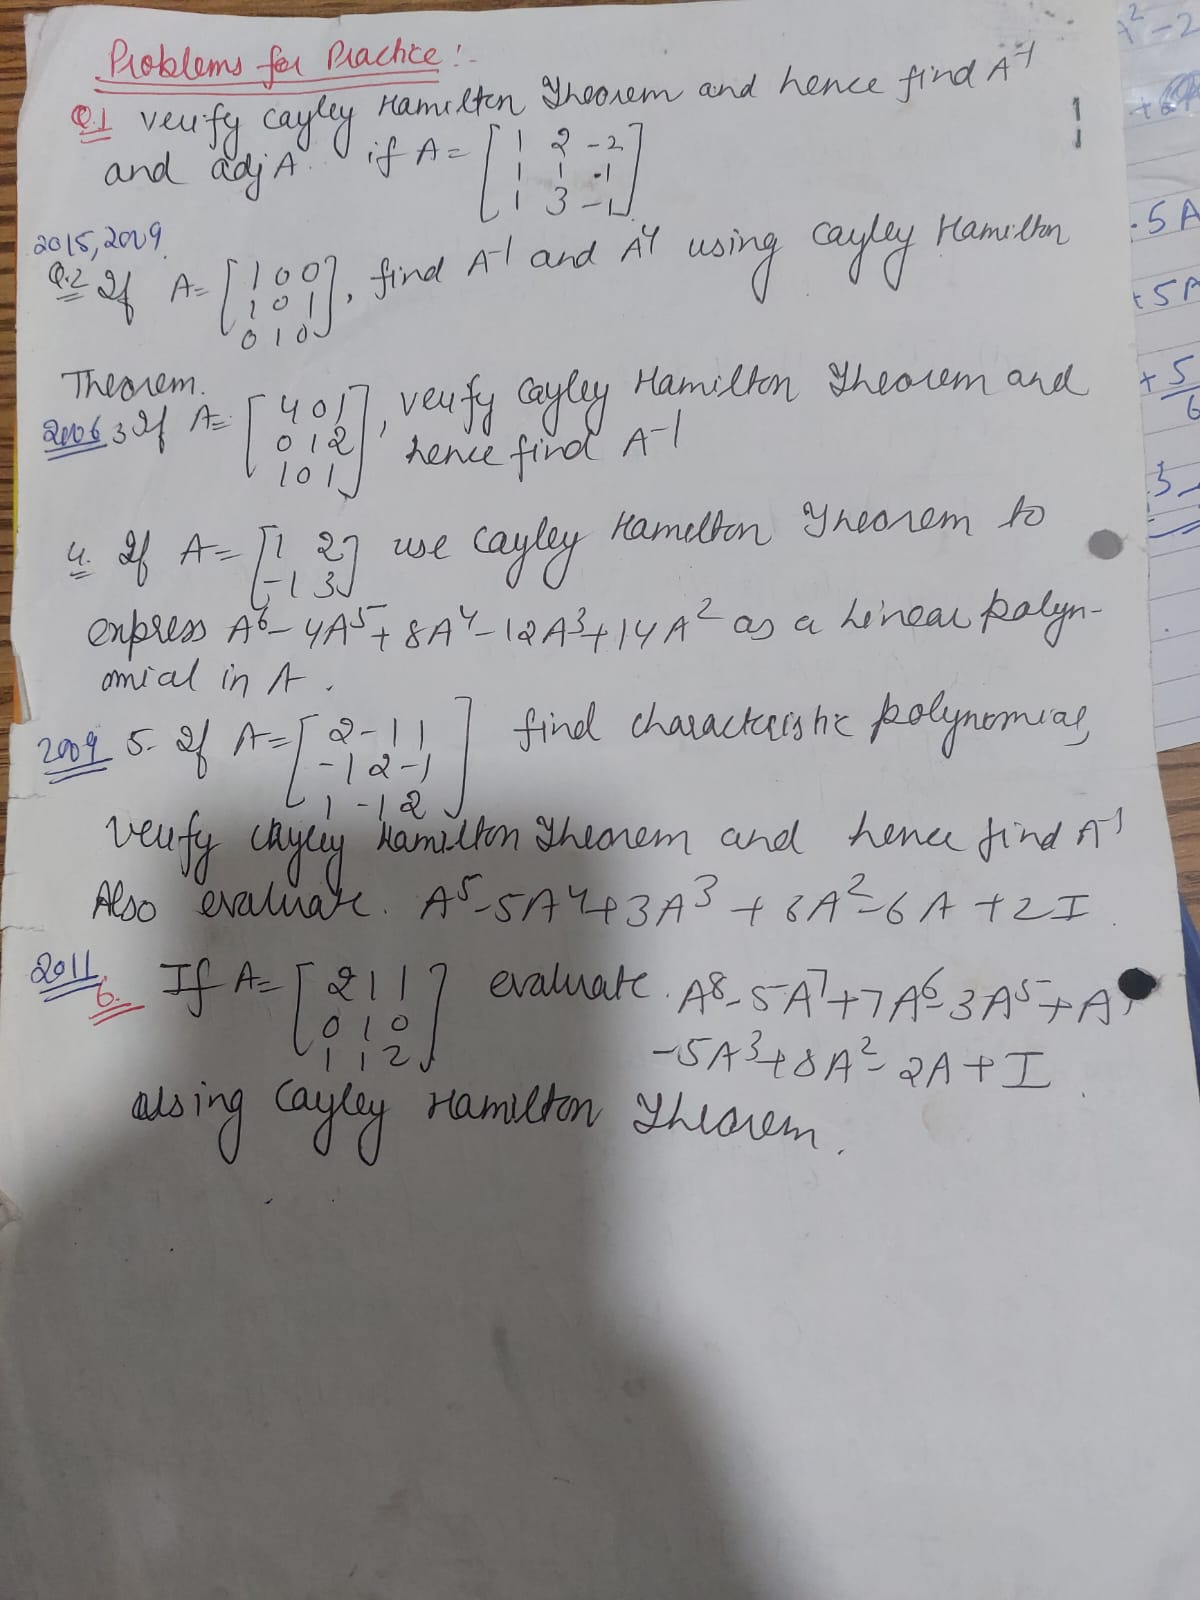 Problems for Practice :-
Q.1 verify Cayley Hamilton Theorem and hence find A^-1
and adj A. if A = [ 1 2 -2
1 1 -1
1 3 -1 ]
2015, 2009
Q.2 If A = [ 1 0 0
1 0 1
0 1 0 ], find A^-1 and A^4 using Cayley Hamilton
Theorem.
2006 3 If A = [ 4 0 1
0 1 2
1 0 1 ], verify Cayley Hamilton Theorem and
hence find A^-1
4. If A = [ 1 2
-1 3 ] use Cayley Hamilton Theorem to
express A^6 - 4A^5 + 8A^4 - 12A^3 + 14A^2 as a Linear polyn-
omial in A.
2009 5. If A = [ 2 -1 1
-1 2 -1
1 -1 2 ] find characteristic polynomial,
verify Cayley Hamilton Theorem and hence find A^-1
Also evaluate. A^5 - 5A^4 + 3A^3 + 8A^2 - 6A + 2I
2011 6. If A = [ 2 1 1
0 1 0
1 1 2 ] evaluate. A^8 - 5A^7 + 7A^6 - 3A^5 + A
- 5A^3 + 8A^2 - 2A + I.
using Cayley Hamilton Theorem.